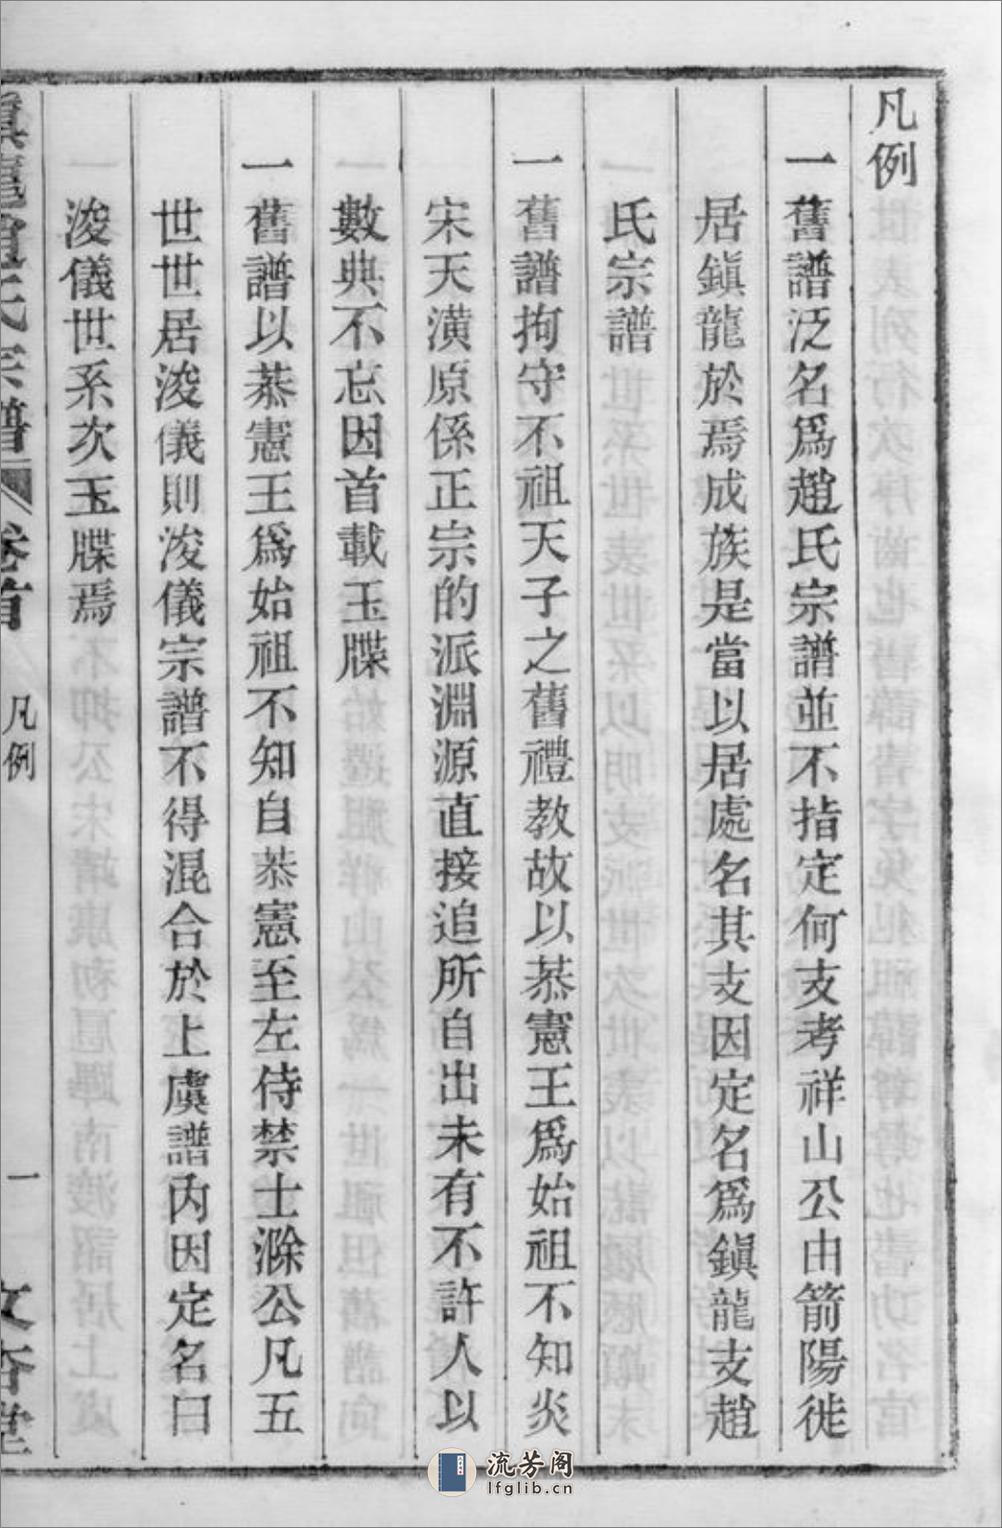 凡例
一舊譜泛名爲趙氏宗譜並不指定何支考祥山公由箭陽徙
居鎭龍於焉成族是當以居處名其支因定名爲鎭龍支趙
氏宗譜
一舊譜拘守不祖天子之舊禮教故以恭憲王爲始祖不知炎
宋天潢原係正宗的派淵源直接追所自出未有不許人以
數典不忘因首載玉牒
一舊譜以恭憲王爲始祖不知自恭憲至左侍禁士滁公凡五
世世居浚儀則浚儀宗譜不得混合於上虞譜內因定名曰
浚儀世系次玉牒焉
鎭龍趙氏宗譜 卷首 凡例 一 文杏堂
流芳阁
lfglib.cn